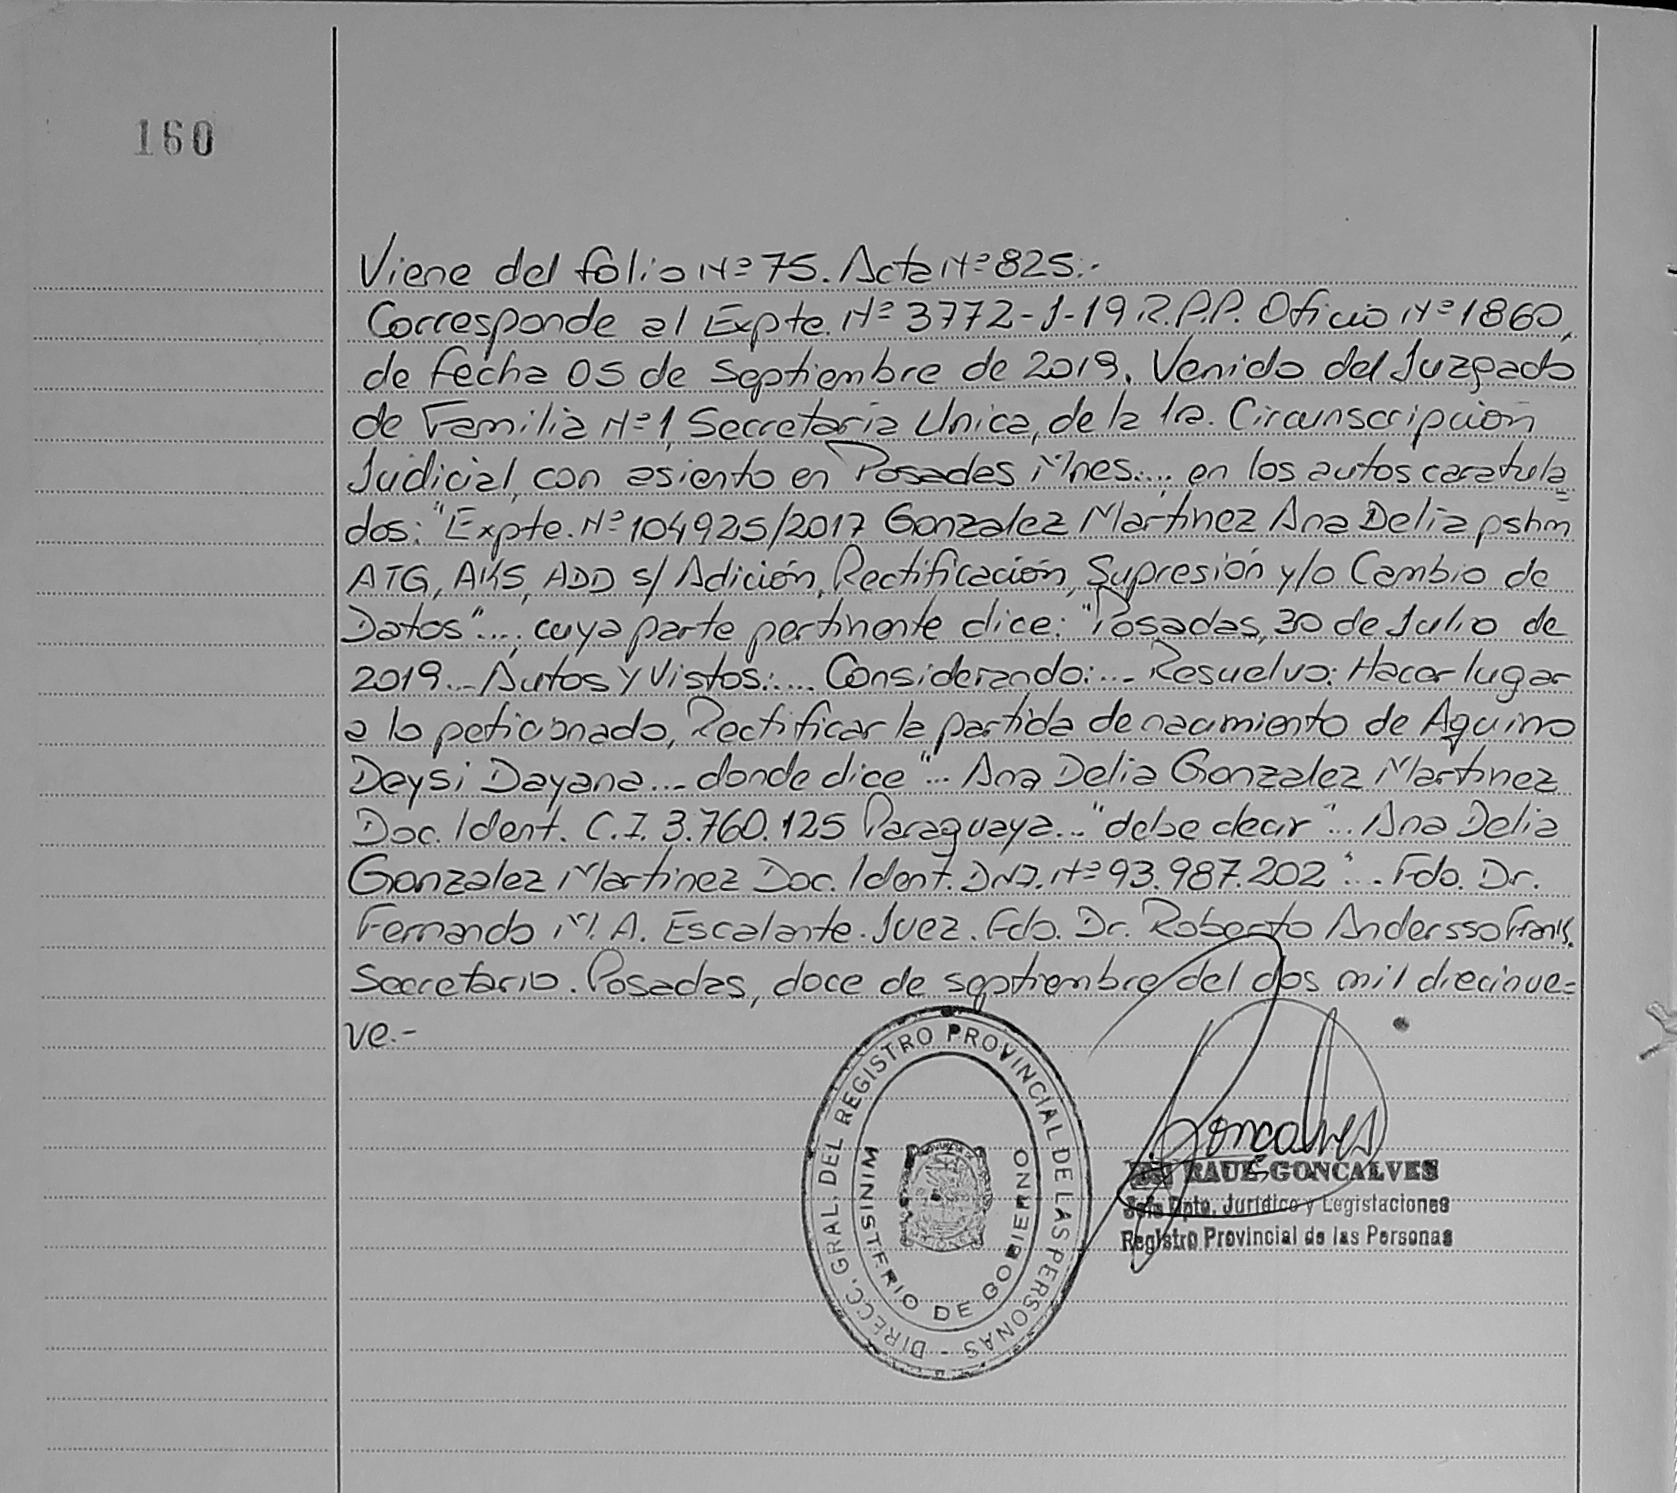 160
Viene del folio Nº 75. Acta Nº 825.-
Corresponde al Expte. Nº 3772-J-19 R.P.P. Oficio Nº 1860,
de fecha 05 de Septiembre de 2019. Venido del Juzgado
de Familia Nº 1, Secretaria Unica, de la 1ra. Circunscripción
Judicial, con asiento en Posadas Mnes...., en los autos caratula
dos: "Expte. Nº 104925/2017 Gonzalez Martinez Ana Delia pshm
ATG, AKS, ADD s/ Adición, Rectificación, Supresión y/o Cambio de
Datos"...., cuya parte pertinente dice: "Posadas, 30 de Julio de
2019... Autos y Vistos:.... Considerando:... Resuelvo: Hacer lugar
a lo peticionado, Rectificar la partida de nacimiento de Aquino
Deysi Dayana... donde dice "... Ana Delia Gonzalez Martinez
Doc. Ident. C.I. 3.760.125 Paraguaya..." debe decir "... Ana Delia
Gonzalez Martinez Doc. Ident. DNI. Nº 93.987.202"... Fdo. Dr.
Fernando M. A. Escalante. Juez. Fdo. Dr. Roberto Andersso
Secretario. Posadas, doce de septiembre del dos mil diecinue=
ve.-
DIRECC. GRAL. DEL REGISTRO PROVINCIAL DE LAS PERSONAS -
MINISTERIO DE GOBIERNO
Goncalves
RAUL GONCALVES
Jefe Dpto. Jurídico y Legislaciones
Registro Provincial de las Personas